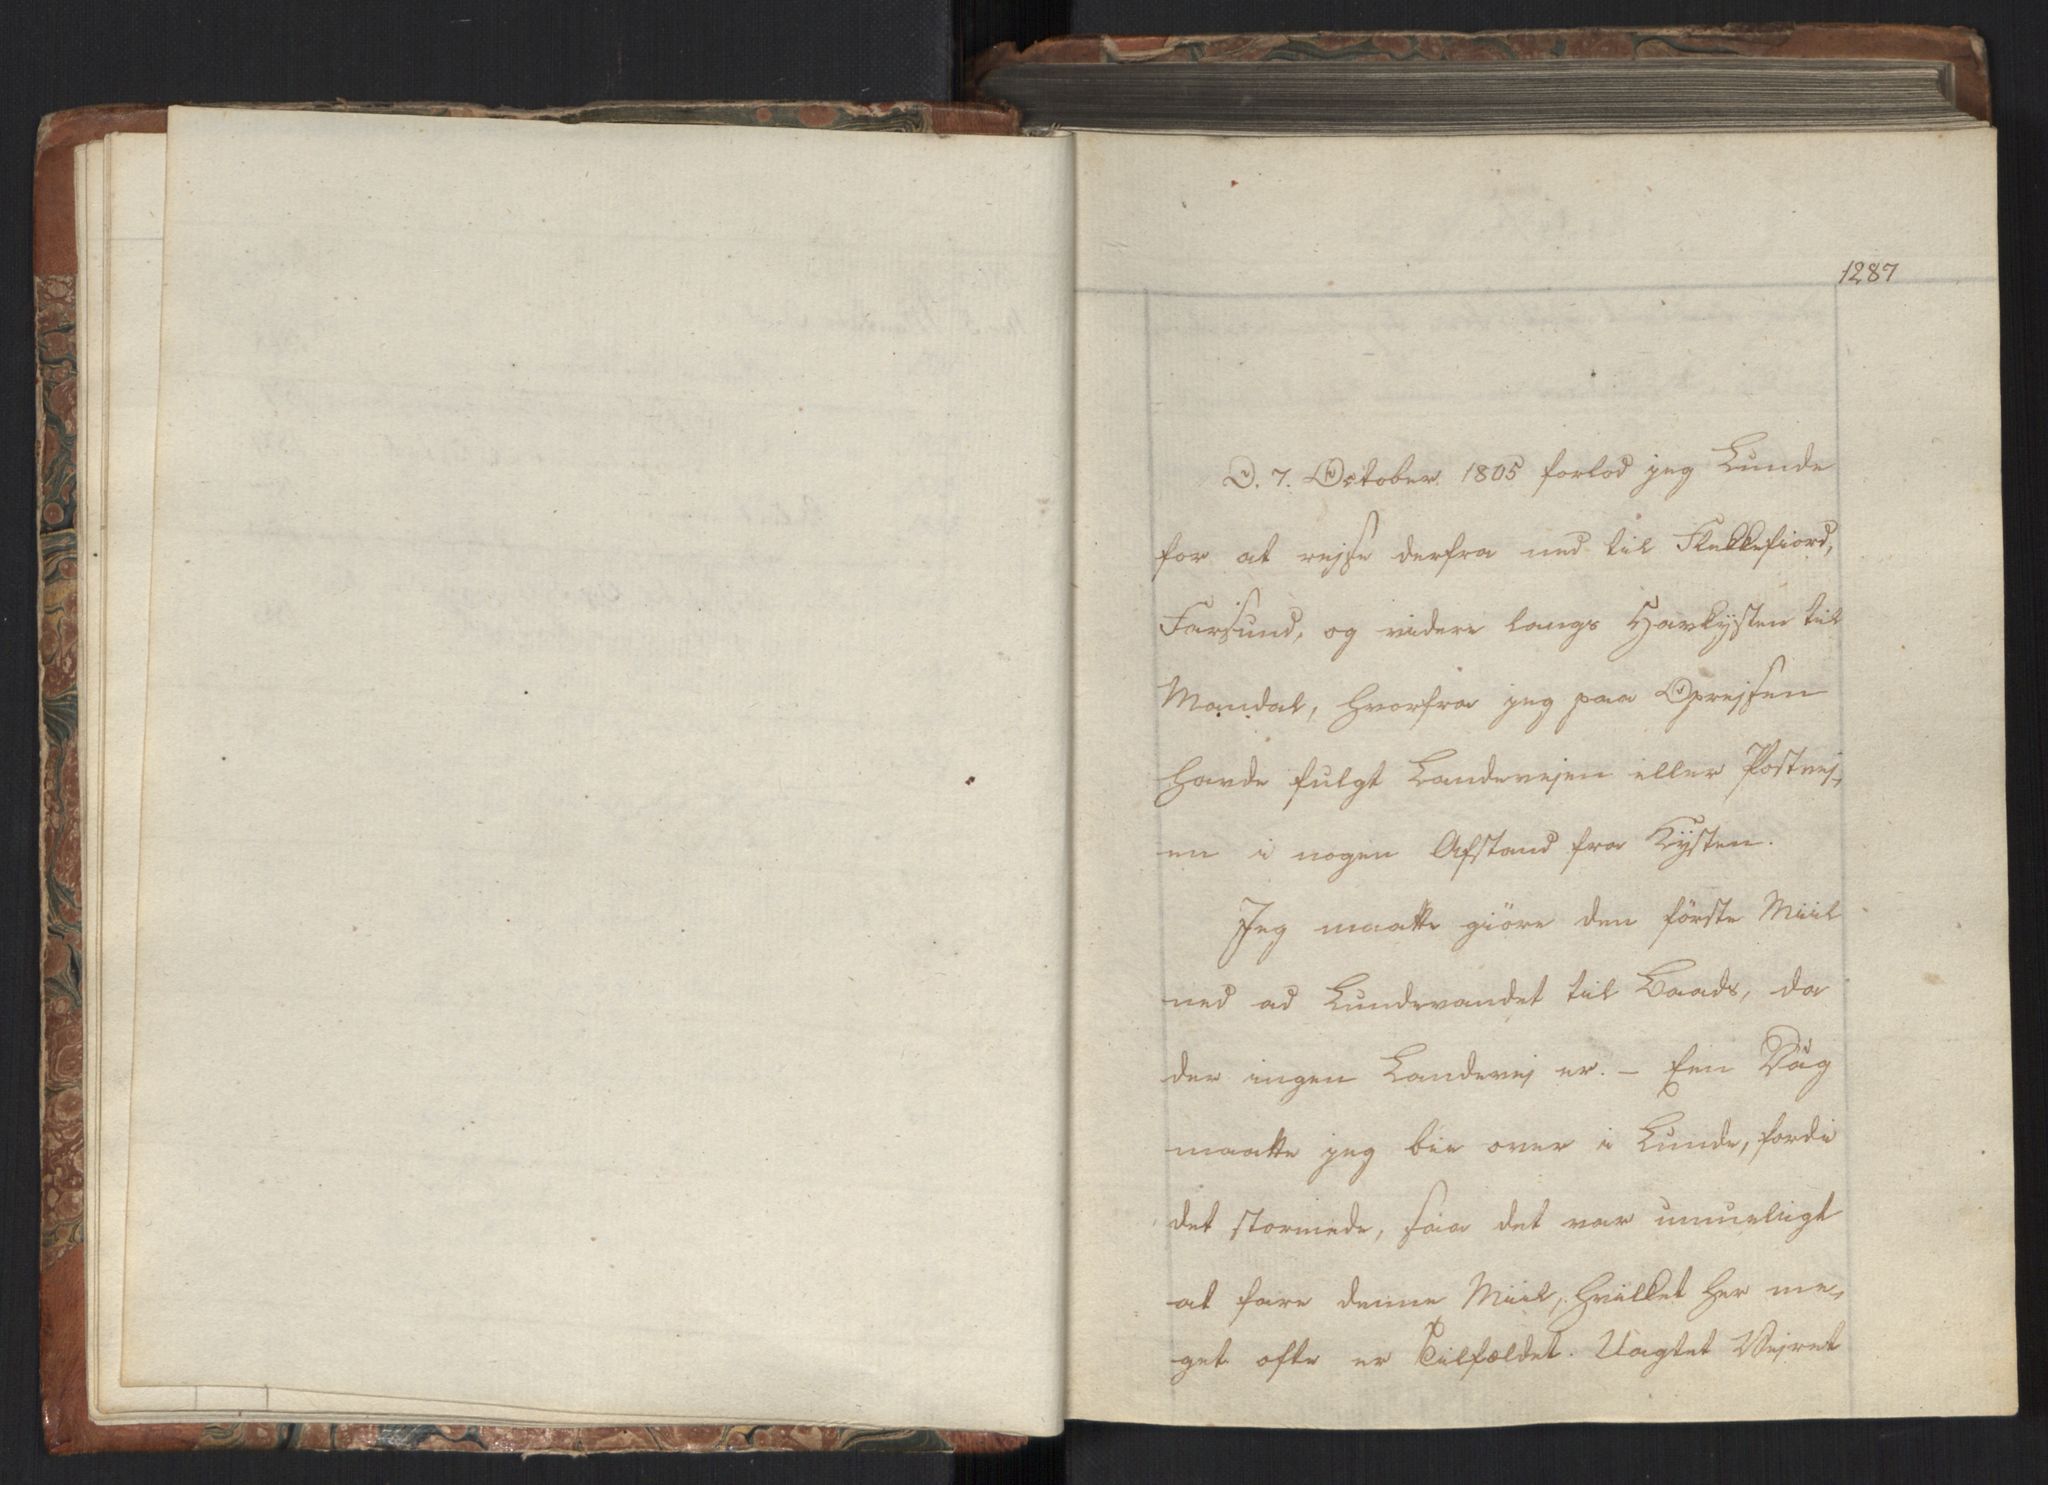 1287
D. 7. October 1805 forlod jeg Lunde
for at rejse derfra ned til Flekkefiord,
Farsund, og videre langs Havkysten til
Mandal, hvorfra jeg paa Oprejsen
havde fulgt Landevejen eller Postvej-
en i nogen Afstand fra Kysten.
Jeg maatte giöre den förste Miil
ned ad Lundevandet til Baads, da
der ingen Landevej er. – Een Dag
maatte jeg bie over i Lunde, fordi
det stormede, saa det var umueligt
at fare denne Miil, hvilket her me-
get ofte er Tilfældet. Uagtet Vejret